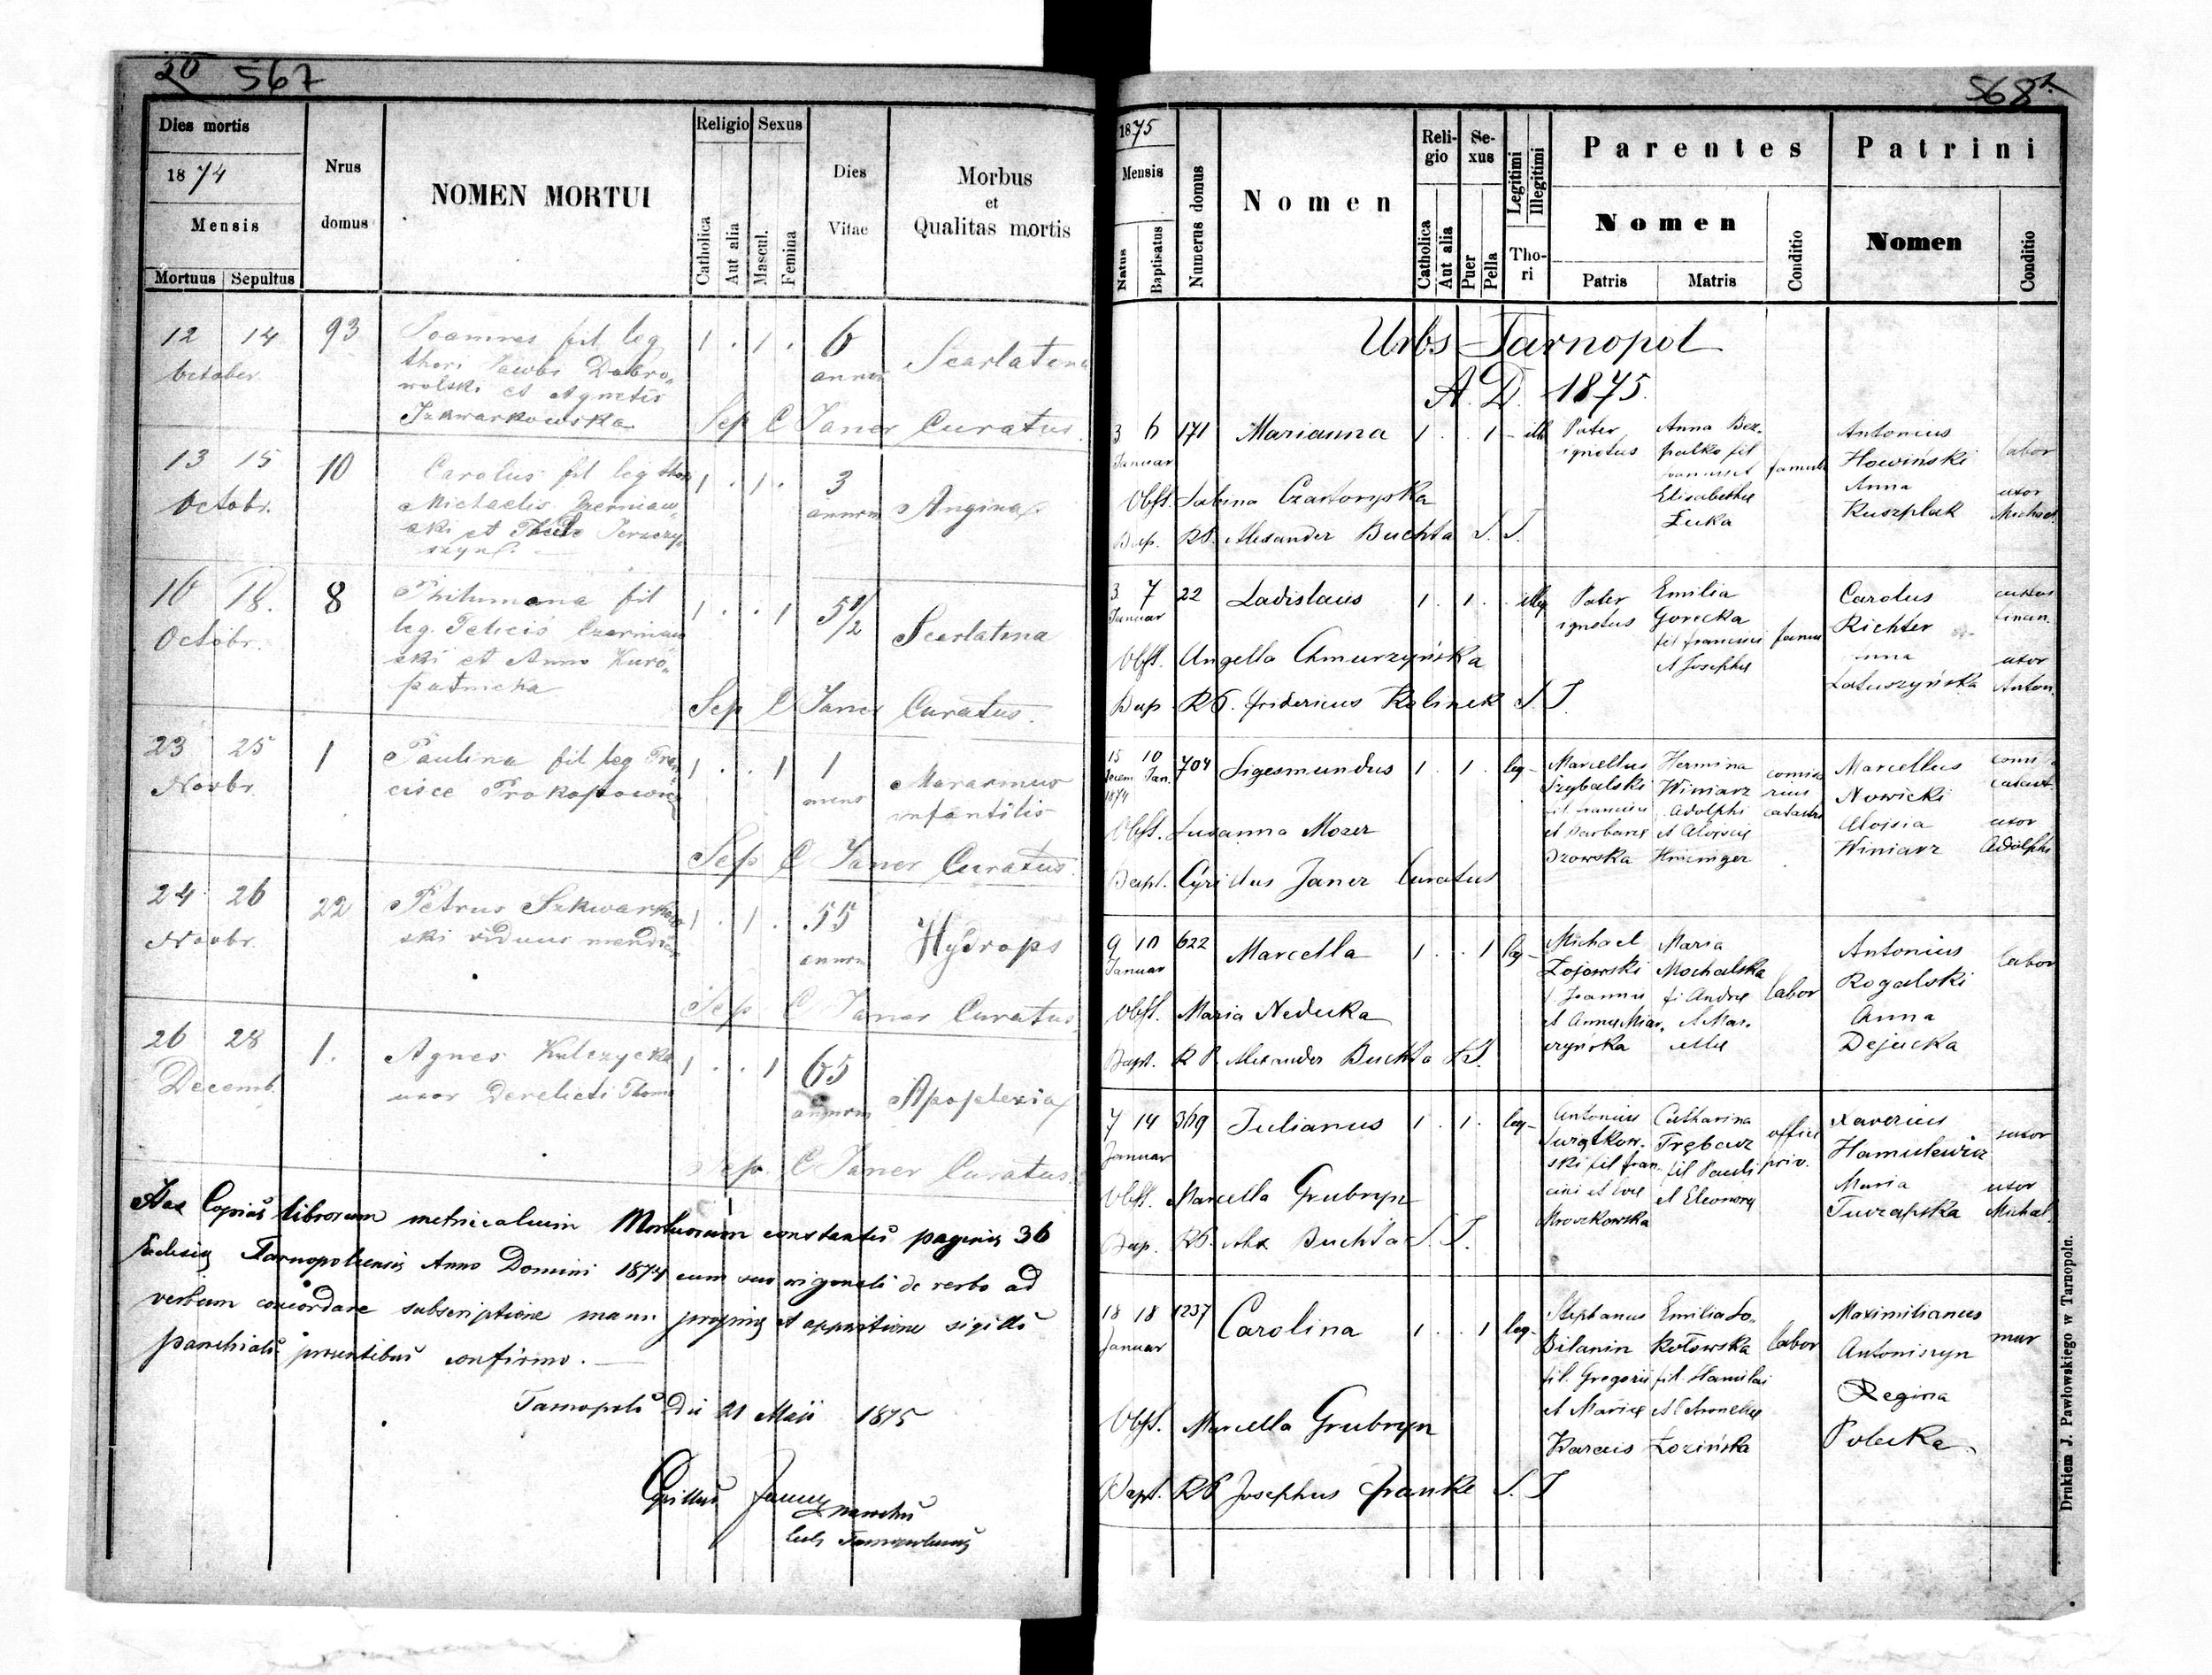 20 567
Dies mortis
1874
Mensis
Mortuus Sepultus
Nrus domus
NOMEN MORTUI
Religio Sexus
Catholica Aut alia Mascul. Femina
Dies Vitae
Morbus et Qualitas mortis
12 14 93 Joannes fil leg 1 . 1 . 6 Scarlatena
October thori Jacobi Dobro„ annor
wolski et Agnetis
Szkwarkowska Sep C Janer Curatus.
13 15 10 Carolus fil leg thor 1 . 1 . 3 Angina
Octobr. Michaelis annorm
ski et
16 18. 8 Philumena fil 1 . . 1 5 1/2 Scarlatina
Octobr. leg. Felicis Czerniaw
ski et Anna Kuro„
patnicka
Sep C Janer Curatus.
23 25 1 Paulina fil leg Fran 1 . . 1 1 Marasmus
Novbr. cisce Prokopowicz mens infantilis
Sep C Janer Curatus.
24 26 22 Petrus Szkwarkow 1 . 1 . 55 Hydrops
Novbr. ski viduus mendic annorm
Sep C Janer Curatus
26 28 1. Agnes Kulczycka 1 . . 1 65 Apoplexia
Decemb. uxor derelicti Thoma annorm
Sep. C Janer Curatus
Has Copias librorum metricalium Mortuorum constantes paginis 36
Eclesię Tarnopoliensis Anno Domini 1874 cum suo originali de verbo ad
verbum concordare subscriptione manu propria et appositione sigilli
parochialis presentibus confirmo.
Tarnopoli die 21 Maji 1875
Cyrillus Janer
parochus
568
1875
Mensis
Natus Baptisatus
Numerus domus
Nomen
Religio
Catholica Aut alia
Sexus
Puer Pella
Legitimi Illegitimi
Thori
Parentes
Nomen
Patris Matris
Conditio
Patrini
Nomen
Conditio
Urbs Tarnopol
A. D. 1875.
3 6 171 Marianna 1 . . 1 ill Pater Anna Bez- Antonius labor
Januar ignotus palko fil famula Howiński
Obst. Sabina Czartoryska Elisabethe Anna uxor
Luka Kuszplak Michael
Bap. RP. Alexander Buchta S. J.
3 7 22 Ladislaus 1 . 1 . illeg Pater Emilia Carolus custos
Januar ignotus Gorecka Richter finan.
fil francisci famul
Obst. Angella Chmurzyńska et Josephe Anna uxor
Latuszyńska Anton.
Bap. RP. Fridericus Kalinek S. J.
15 10 704 Sigesmundus 1 . 1 . leg- Marcellus Hermina Marcellus
Decem Jan. Szybalski Winiarz Nowicki
1874 Adolphi Aloisia uxor
Obst. Susanna Mozer et Barbare et Aloisie Winiarz Adolphi
Bapt. Cyrillus Janer Curatus
9 10 622 Marcella 1 . . 1 leg- Michael Maria Antonius labor
Januar Łojowski Mochalska labor Rogalski
f. Joannis fi Andre Anna
Obst. Maria Neducka Dejucka
Bapt. R P. Alexander Buchta S.J.
7 14 369 Julianus 1 . 1 . leg- Antonius Catharina offici Xaverius sutor
Januar Trębacz priv. Hamulewicz
ski fil fran- fil Pauli Maria uxor
Obst. Marcella Grubryn cisci et Eve et Eleonore Michal.
Mroczkowska
Bap. RP. Alex Buchta S. J.
18 18 1237 Carolina 1 . . 1 leg- Stephanus Emilia So„ Maximilianus mur
Januar Bilanin kołowska labor Antoniszyn
fil. Gregorii fil. Stanislai Regina
Obst. Marcella Grubryn et Marie et Petronelle
Karcuis Łozińska
Bapt. RP Josephus Franke S. J
Drukiem J. Pawłowskiego w Tarnopolu.